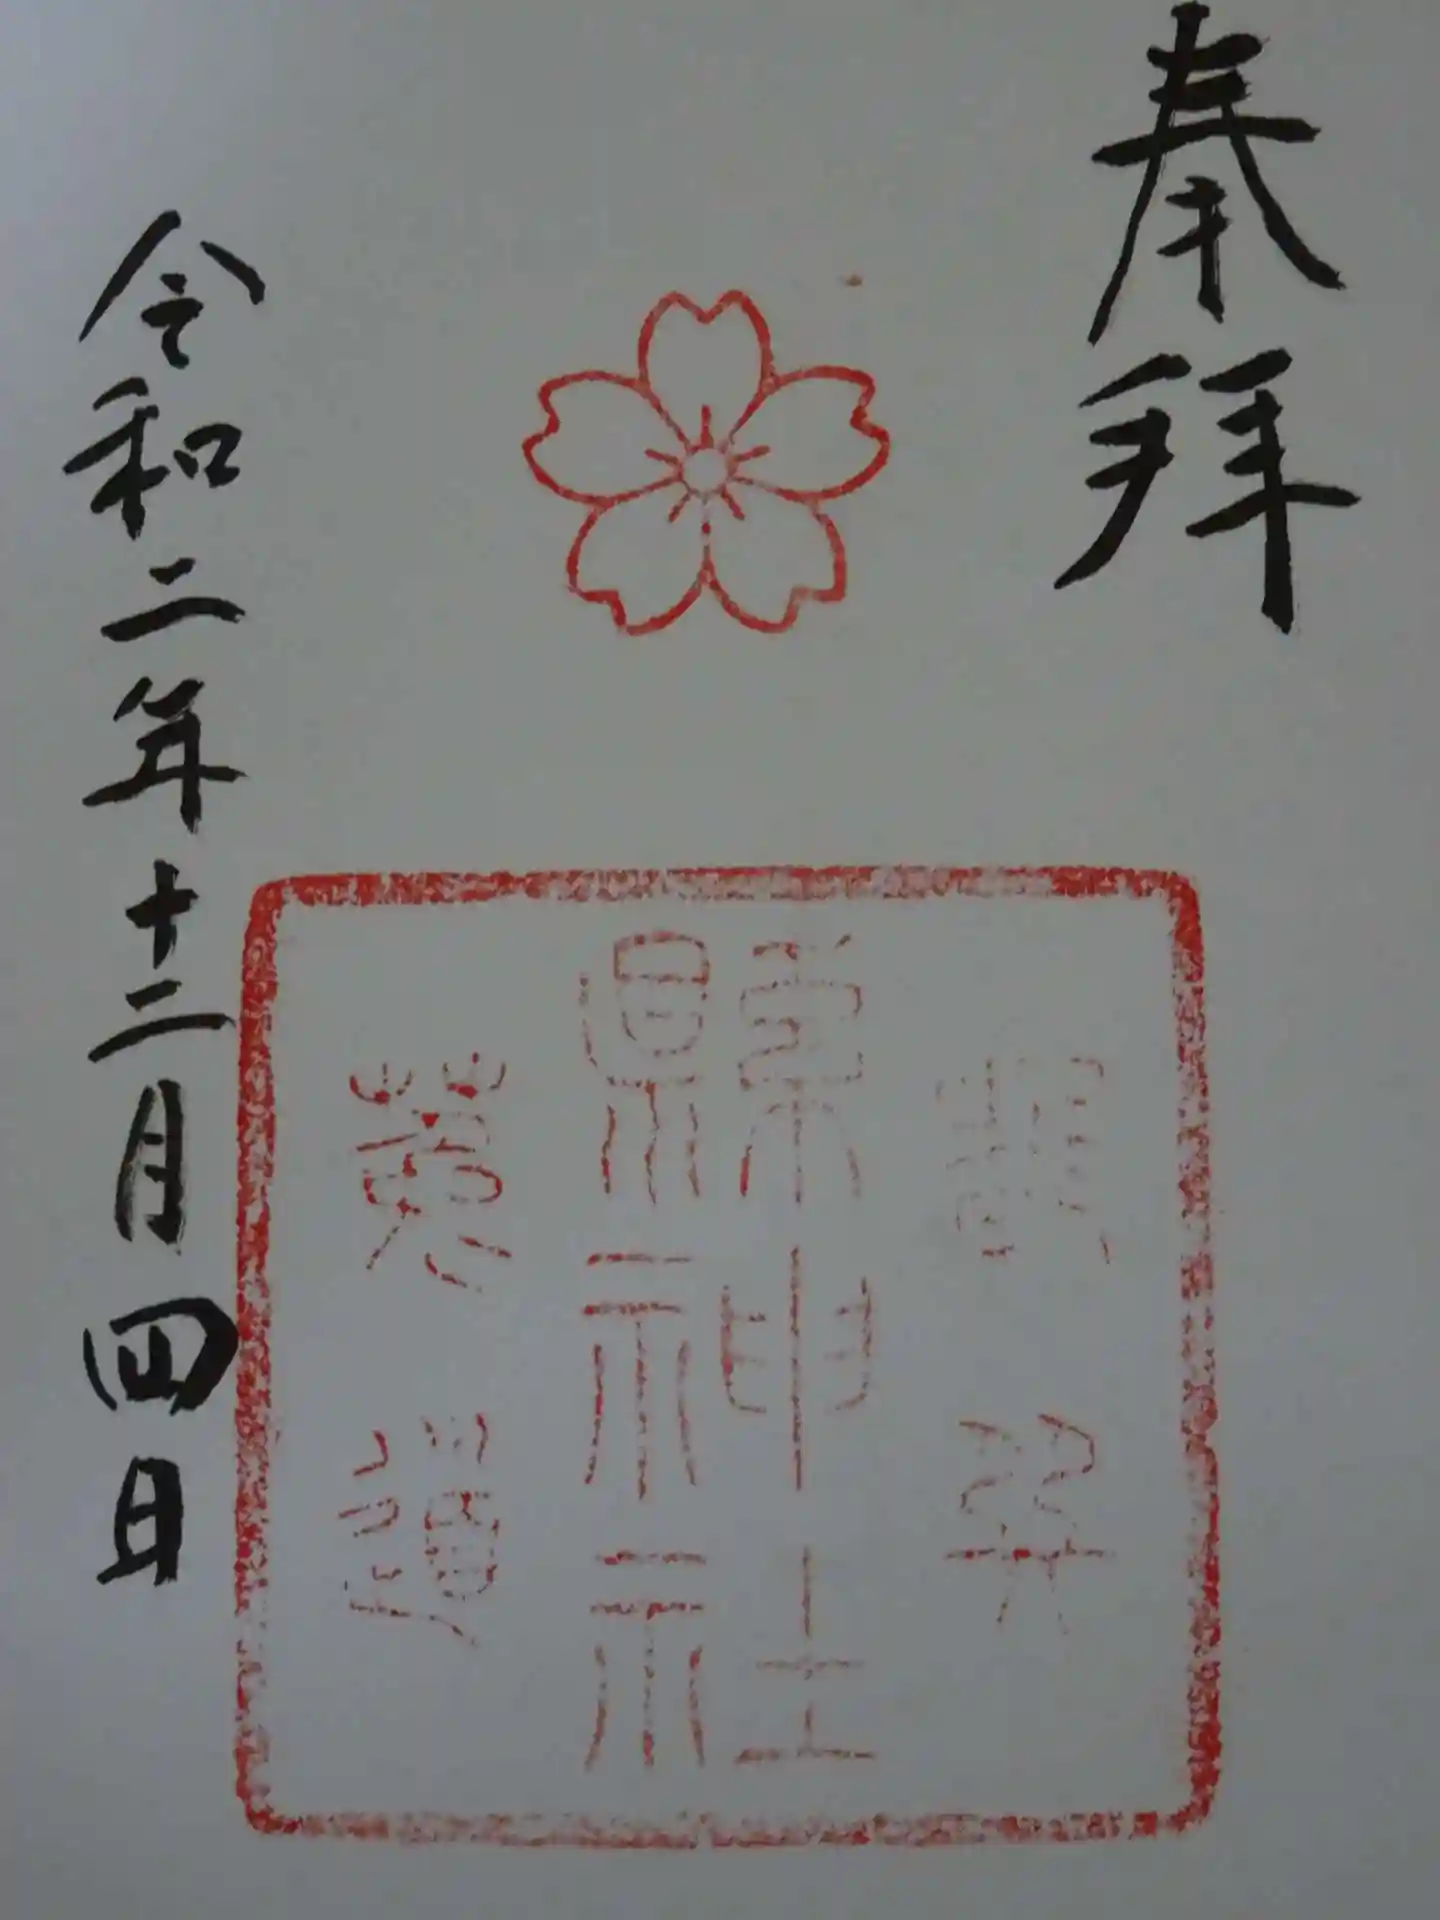 奉拝
縣神社
菟道
令和二年十二月四日